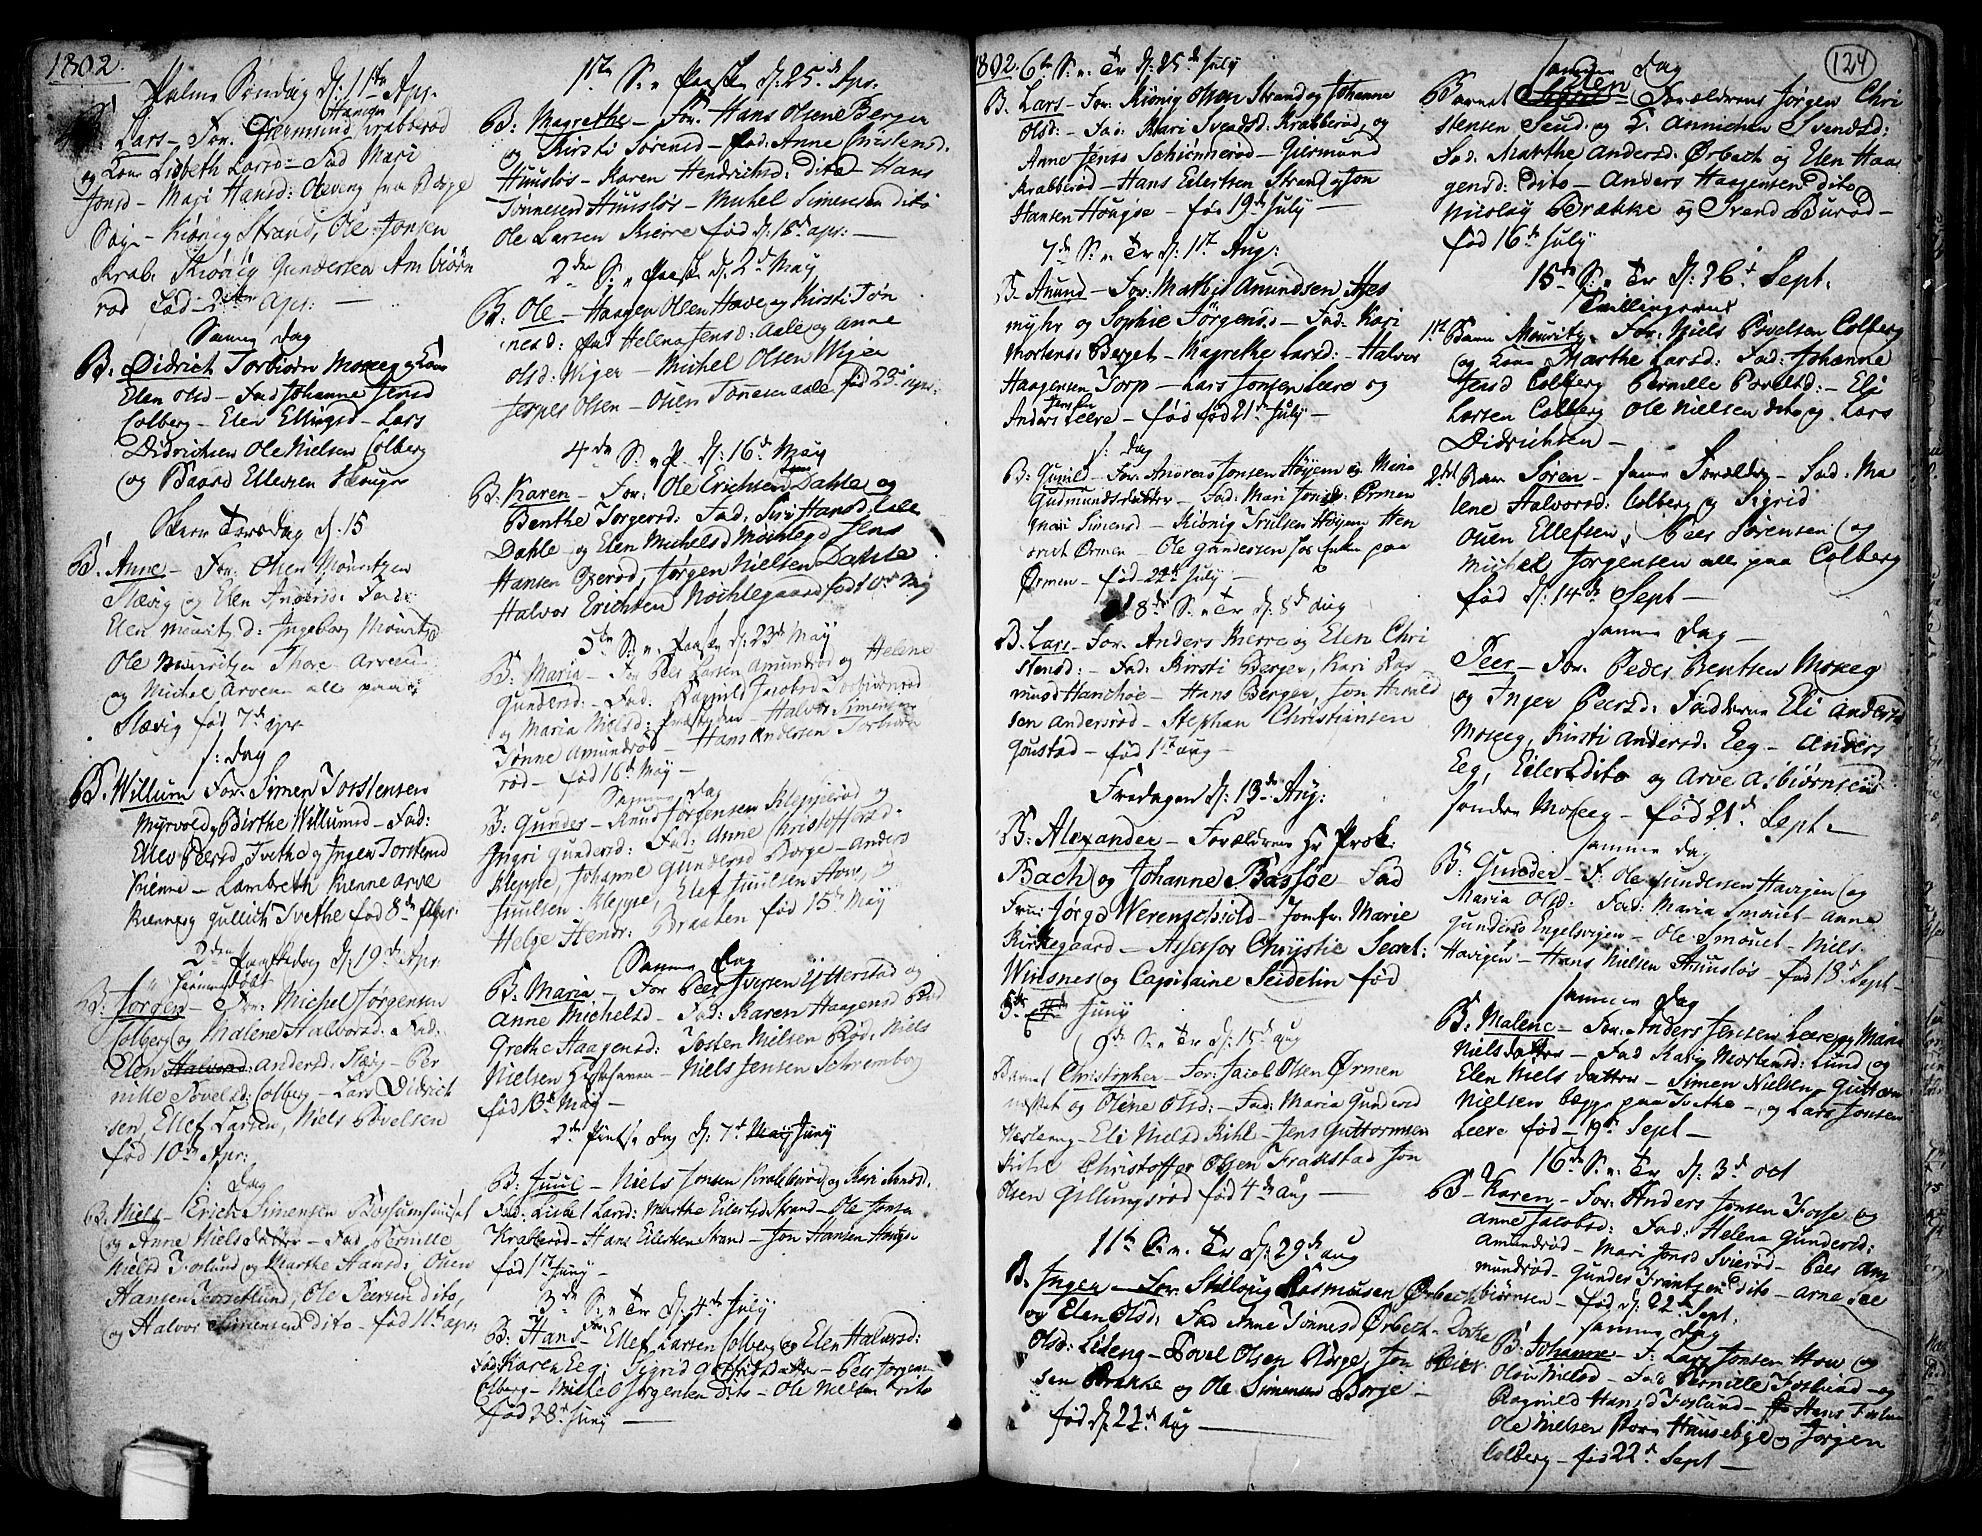 1802.
Palme Søndag d: 11te Apr.
Hansen
B: Lars – For. Giermund Krabberød
og Kone Lisbeth Larsd – Fad Mari
Jonsd – Mari Hansd: Oleveng fra Borge
Sogn – Kiønig Strand, Ole Jonsen
Krab. Kiønig Gundersen Ambiørn
rød født 2den apr: —
Samme Dag
B: Didrich Torbiørn Moxeg og Kone
Elen Olsd – Fad Johanne Jensd
Colberg – Elen Ellingsd – Lars
Didrichsen Ole Nielsen Colberg
og Baard Ellevsen
Skiær Torsdag d: 15
B. Anne – For. Olsen Mouritzen
Slævig og Elen Andersd: Fad:
Elen Mouritzd: Ingeborg Mouritzd
Ole Mouritzen Thore Arvesen
og Michel Arvesen alle paa
Slævig født 7de apr
s: Dag
B. Willum For. Simen Torstensen
Myrvold og Birthe Willumsd – Fad:
Ellev Peersd Tvethe og Inger Torstensd
Kienne – Lambreth Kienne Arve
Kienne og Gullich Tvethe født 8de Apr.
2den Paaskedag d: 19de Apr
hiemmedøbt
B: Jørgen – For. Michel Jørgensen
Colberg og Malene Halvorsd. Fad:
Elen Halvorsd: Andersd: – Per
nille Povelsd: Colberg – Lars Didrich
sen, Ellef Larsen, Niels Povelsen
født 10de Apr:
s: Dag
B. Niels – Erich Simensen
og Anne Nielsdatter – Fad Pernille
Nielsd Foslund og Marthe Hansd: Ouen
Hansen Foslund, Ole Peersen dito,
og Halvor Simensen dito – født 11te apr
1te S: e Paaske d: 25de Apr:
B: Magrethe – For. Hans Olsen Berger
og Kirsti Sørensd – Fad: Anne Christensd.
Huusløs – Karen Hendrichsd: dito – Hans
Tønnesen Huusløs – Michel Simensen dito
Ole Larsen Kierre født d: 15de apr: —
2den S: e Paaske d: 2de May
B: Ole – Haagen Olsen Have og Kirsti Tøn
nesd: Fad Helena Jensd: Aale og Anne
Olsd: Wejer – Michel Olsen Wejer
Jesper Olsen – Ouen Tønnesen Aale, fød 23de apr.
4de S: e P. d: 16de May
B: Karen – For: Ole Erichsen Dahle og
Benthe Torgersd: Fad: Siri Hansd Lille
Dahle og Elen Michelsd Møchlegd Jens
Hansen Oxerød, Jørgen Nielsen Dahle
Halvor Erichsen Nøchlegaard født 10de May
5te S: e: Paaske d: 23de May
B: Maria – For Peer Larsen Amundrød og Helene
Gundersd: – Fad. Ragnild Jacobsd Torbiørnrød
og Maria Nielsd: – Halvor Simensen
Tønne Amundrød – Hans Andersen Torbiørn
rød – fød 16de May –
Samme Dag
B: Gunder – Knud Jørgensen Kleppe og
Ingri Gundersd: Fad: Anne Christoffersd.
Kleppe, Johanne Gundersd Borge – Anders
Juulsen Kleppe, Elef Juulsen How,
Helge Hendr: Braaten fød 15de May
Samme Dag
B: Maria – For Peer Iversen Ytterstad og
Anne Michelsd – Fad: Karen Haagensd Rød
Grethe Haagensd: Josten Nielsen Rød, Niels
Nielsen – Niels Jensen
fød 13de May –
2den Pintse Dag d: 7de May Juny
B: Juul – Niels Jonsen Krabberød og Kari Svendsd.
Fad. Lisbet Larsd: Marthe Eilertsd Strand – Ole Jonsen
Krabberød – Hans Eilertsen Strand – Jon Hansen Hougse –
fød 1te Juny –
3de S: e Tr d: 4de July
B: Hans – Ellef Larsen Colberg og Elen Halvorsd:
Fad Karen Eeg; Sigrid datter – Peer Jørgensen
Colberg – Michel Jørgensen dito – Ole Nielsen dito
fød 28de Juny —
1802. 6te S: e Tr d: 25de July
B: Lars – For. Kiønig Olsen Strand og Johanne
Olsd: – Fad: Mari Svendsd: Krabberød, og
Anne Jensd Schiønnerød – Giermund
Krabberød – Hans Eilertsen Strand og Jon
Hansen Hougse – fød 19de July —
7de S: e Tr d: 1te Aug:
B. Anund – For: Mathis Anundsen Aas
myhr og Sophie Jørgensd: – Fad: Kari
Mortensd: Berget – Magrethe Larsd: – Halvor
Haagensen Torp – Lars Jonsen Leere og
Anders Jensen Leere – fød fød 21de July –
s: Dag
B: Gunild – For: Andreas Jonsen Høyem og Maria
Gudmundsdatter – Fad: Mari Jonsd: Ørmen
Mari Simensd – Kiønig Trulsen Høyem Hen
rich Ørmen – Ole Gundersen paa
Ørmen – fød 22de July –
8de S: e Tr d: 8de Aug
B. Lars – For. Anders Kierre og Elen Chri
stensd: – Fad: Kirsti Berger, Kari Ras
musd Hanchøe – Hans Berger, Jon Harald
sen Andersrød – Stephan Christiansen
Goustad – fød 1te aug –
Fredagen d: 13de Aug:
B: Alexander – Forældrene Hr Prok:
Bach og Johanne Bassøe – Fad
Frue Jørgd Werenschiold – Jomfr: Marie
Kirkegaard – Assessor Chrystie Seart:
Winsnes og Capitaine Seidelin fød
5te Juny
9de S: e Tr d: 15de aug
Barnet Christopher – For: Jacob Olsen Ørmen
og Oline Olsd: – Fad: Maria Gundersd
– Eli Nielsd Kihl – Jens Guttormsen
Kihl Christoffer Olsen Trakstad Jon
Olsen Gillungsrød fød 4de aug —
11te S. e. Tr d: 29de aug
B. Inger – For Stilloug Rasmussen Ørbech
og Elen Olsd: Fad Anne Tønnesd Ørbech – Dorte
Olsd: Lileng – Povel Olsen Borge, Jon Peder
sen Brække og Ole Simensen Borge –
fød d: 22de Aug —
124
samme Dag
Elen
Barnet – Forældrene Jørgen Chri
stensen Seud og K. Annichen Svendsd:
Fad. Marthe Andersd: Ørbech og Elen Haa
gensd: dito – Anders Haagensen dito
Nicolay Brække og Svend Burød –
fød 16de July
15de S: e Tr d: 26de Sept.
Tvillingerne
1te Barn Mouritz – For: Niels Povelsen Colberg
og Kone Marthe Larsd: Fad: Johanne
Jensd Colberg Pernille Povelsd: – Eli
Larsen Colberg Ole Nielsen dito og Lars
Didrichsen –
2det Barn Søren – samme Forældre – Fad: Ma
lene Halvorsd: Colberg og Sigrid
Ouen Ellefsen, Peer Sørensen og
Michel Jørgensen alle paa Colberg
fød d: 14de Sept –
samme Dag –
Peer – For. Peder Bentsen Moxeg
og Inger Peersd: Fadderne Eli Andersd
Moxeg, Kirsti Andersd: Eeg – Anders
Eeg, Eilert dito og Arve Asbiørnsen
søndre Moxeg – fød 21de Sept –
samme Dag
B: Gunder – F: Ole Gundersen Havigen og
Maria Olsd: Fad: Maria Smouet – Anne
Gundersd Engelsvigen – Ole Smouet – Niels
Havigen – Hans Nielsen Huusløs – fød 18de Sept –
samme Dag
B: Malene – For. Anders Jensen Leere og Maria
Nielsdatter – Fad Kari Mortensd: Lund og
Elen Nielsdatter – Simen Nielsen – Guttorm
Nielsen begge paa Tvethe – og Lars Jonsen
Leere fød – 19de Sept –
16de S: e Tr d: 3de Oct
B – Karen – For: Anders Jonsen Fosse og
Anne Jacobsd: Fad: Helena Gundersd:
Amundrød – Mari Jonsd Svierød – Peer Am
mundrød – Gunder Frantzen dito – Arne See
biørnsen – fød d: 22de Sept.
samme Dag
B: Johanne – F: Lars Jonsen How og
Olou Nielsd – Fad Pernille Foslund – og
Ragnild Hansd Foslund – Hans Foslund
Ole Nielsen Huusebye og Jørgen
Colberg – fød 22de Sept —